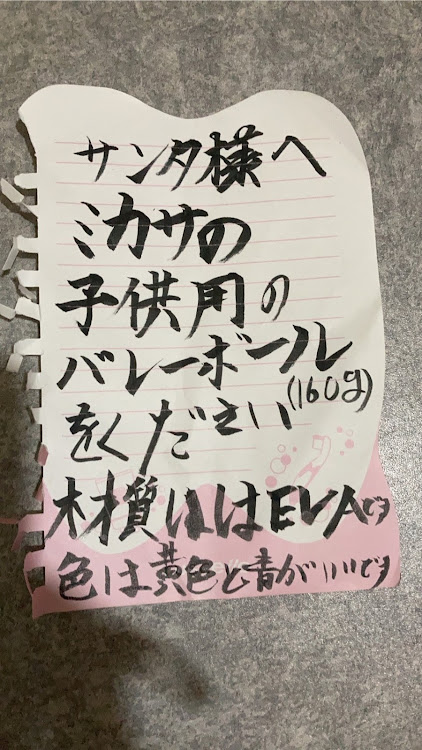 サンタ様へ
ミカサの
子供用の
バレーボール
(160g)
をください
木材質ははEVAです
色は黄色と青がいいです